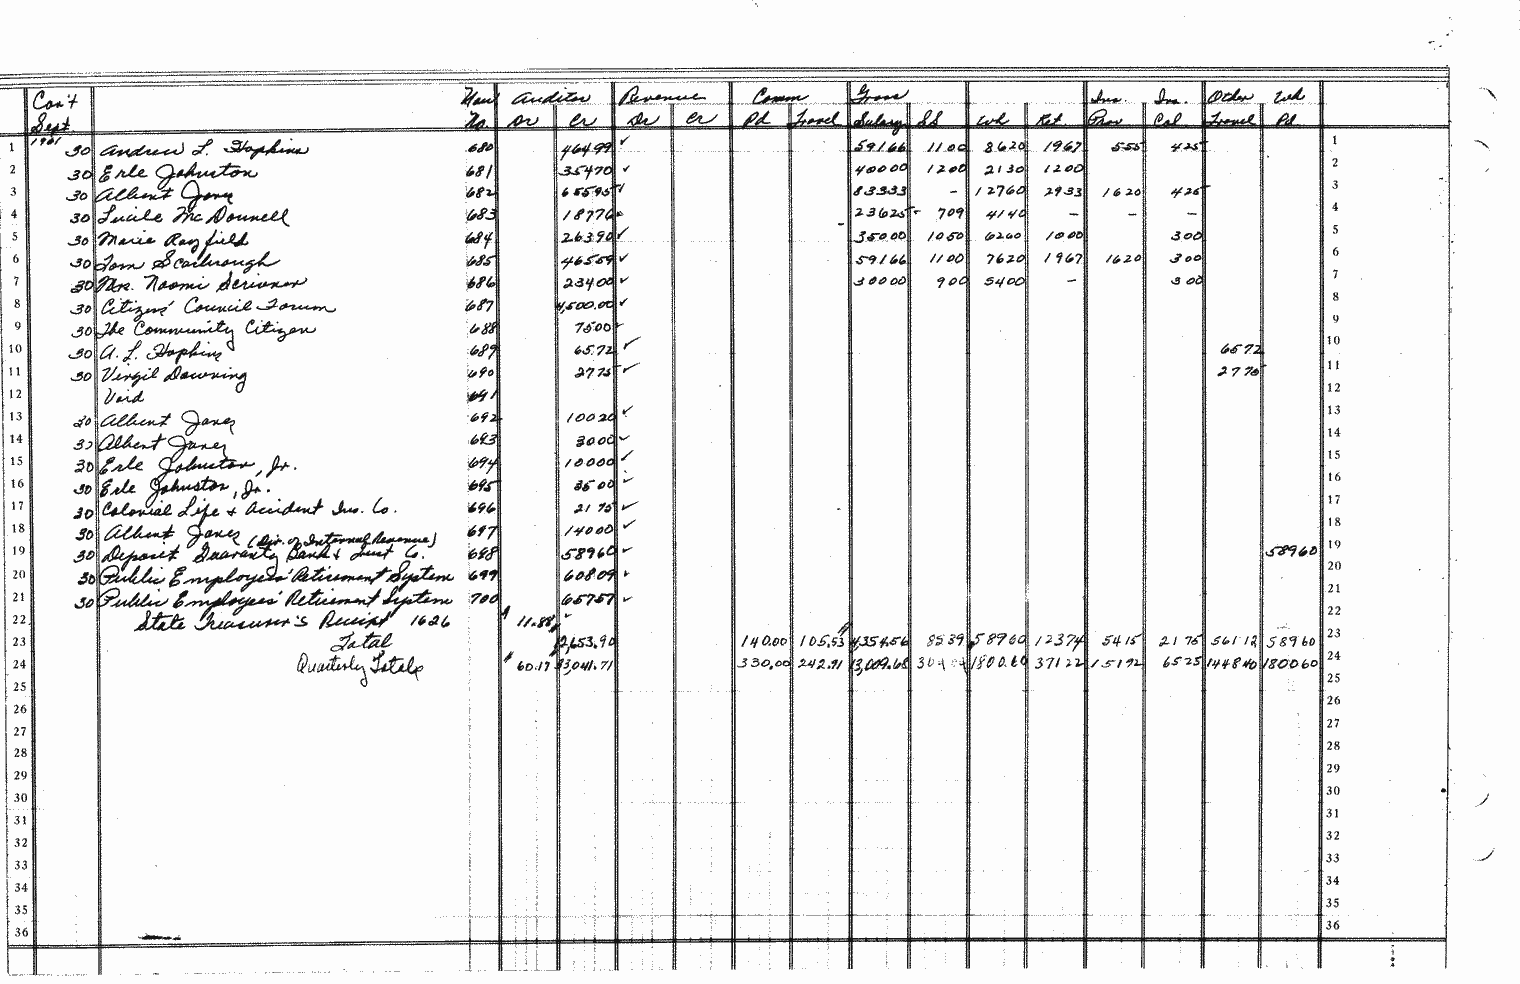 Con't Hau Auditor Revenue Comm Gross Ins. Ins. Other Wh
Sept. No. Dr Cr Dr Cr Pd Travel Salary SS Wh Ret. Prov Col Travel Pd.
1961
1 30 Andrew L. Hopkins 680 464.99 ✓ 591 66 11 00 86 20 19 67 5 55 4 25 1
2 30 Erle Johnston 681 354 70 ✓ 400 00 12 00 21 30 12 00 2
3 30 Albert Jones 682 655 95 ✓ 833 33 - 127 60 29 33 16 20 4 25 3
4 30 Lucile McDonnell 683 187 76 236 25 - 7 09 41 40 - - - 4
5 30 Marie Rayfield 684 263.90 ✓ 350.00 10 50 62 60 10 00 3 00 5
6 30 Tom Scarbrough 685 465 59 ✓ 591 66 11 00 76 20 19 67 16 20 3 00 6
7 30 Mrs. Naomi Scrivner 686 234 00 ✓ 300 00 9 00 54 00 - 3 00 7
8 30 Citizens' Council Forum 687 4,500.00 ✓ 8
9 30 The Community Citizen 688 75 00 9
10 30 A. L. Hopkins 689 65.72 ✓ 65 72 10
11 30 Virgil Downing 690 27 75 ✓ 27 75 11
12 Void 691 12
13 30 Albert Jones 692 100 20 ✓ 13
14 30 Albert Jones 693 30 00 ✓ 14
15 30 Erle Johnston, Jr. 694 100 00 ✓ 15
16 30 Erle Johnston, Jr. 695 35 00 ✓ 16
17 30 Colonial Life & Accident Ins. Co. 696 21 75 ✓ 17
18 30 Albert Jones 697 140 00 ✓ 18
(Dir. of Internal Revenue)
19 30 Deposit Guaranty Bank & Trust Co. 698 589 60 ✓ 589 60 19
20 30 Public Employees' Retirement System 699 608 09 ✓ 20
21 30 Public Employees' Retirement System 700 657 57 ✓ 21
22 State Treasurer's Receipt 1626 11.88 22
23 Total 12,653.90 140.00 105.53 4,354.56 85 39 589 60 123 74 54 15 21 75 561 12 589 60 23
24 Quarterly Totals 60.17 33,041.71 330.00 242.91 13,009.68 1800.60 371 22 151 92 65 25 1448 40 1800 60 24
25 25
26 26
27 27
28 28
29 29
30 30
31 31
32 32
33 33
34 34
35 35
36 36